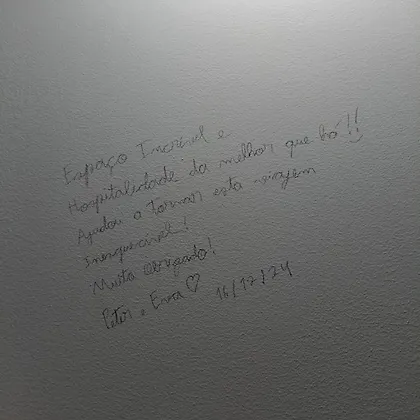 Espaço Incrível e
Hospitalidade da melhor que há!! :)
Ajudou a tornar esta viagem
inesquecível!
Muito obrigado!
Peter e Enza ♡ 16/12/24